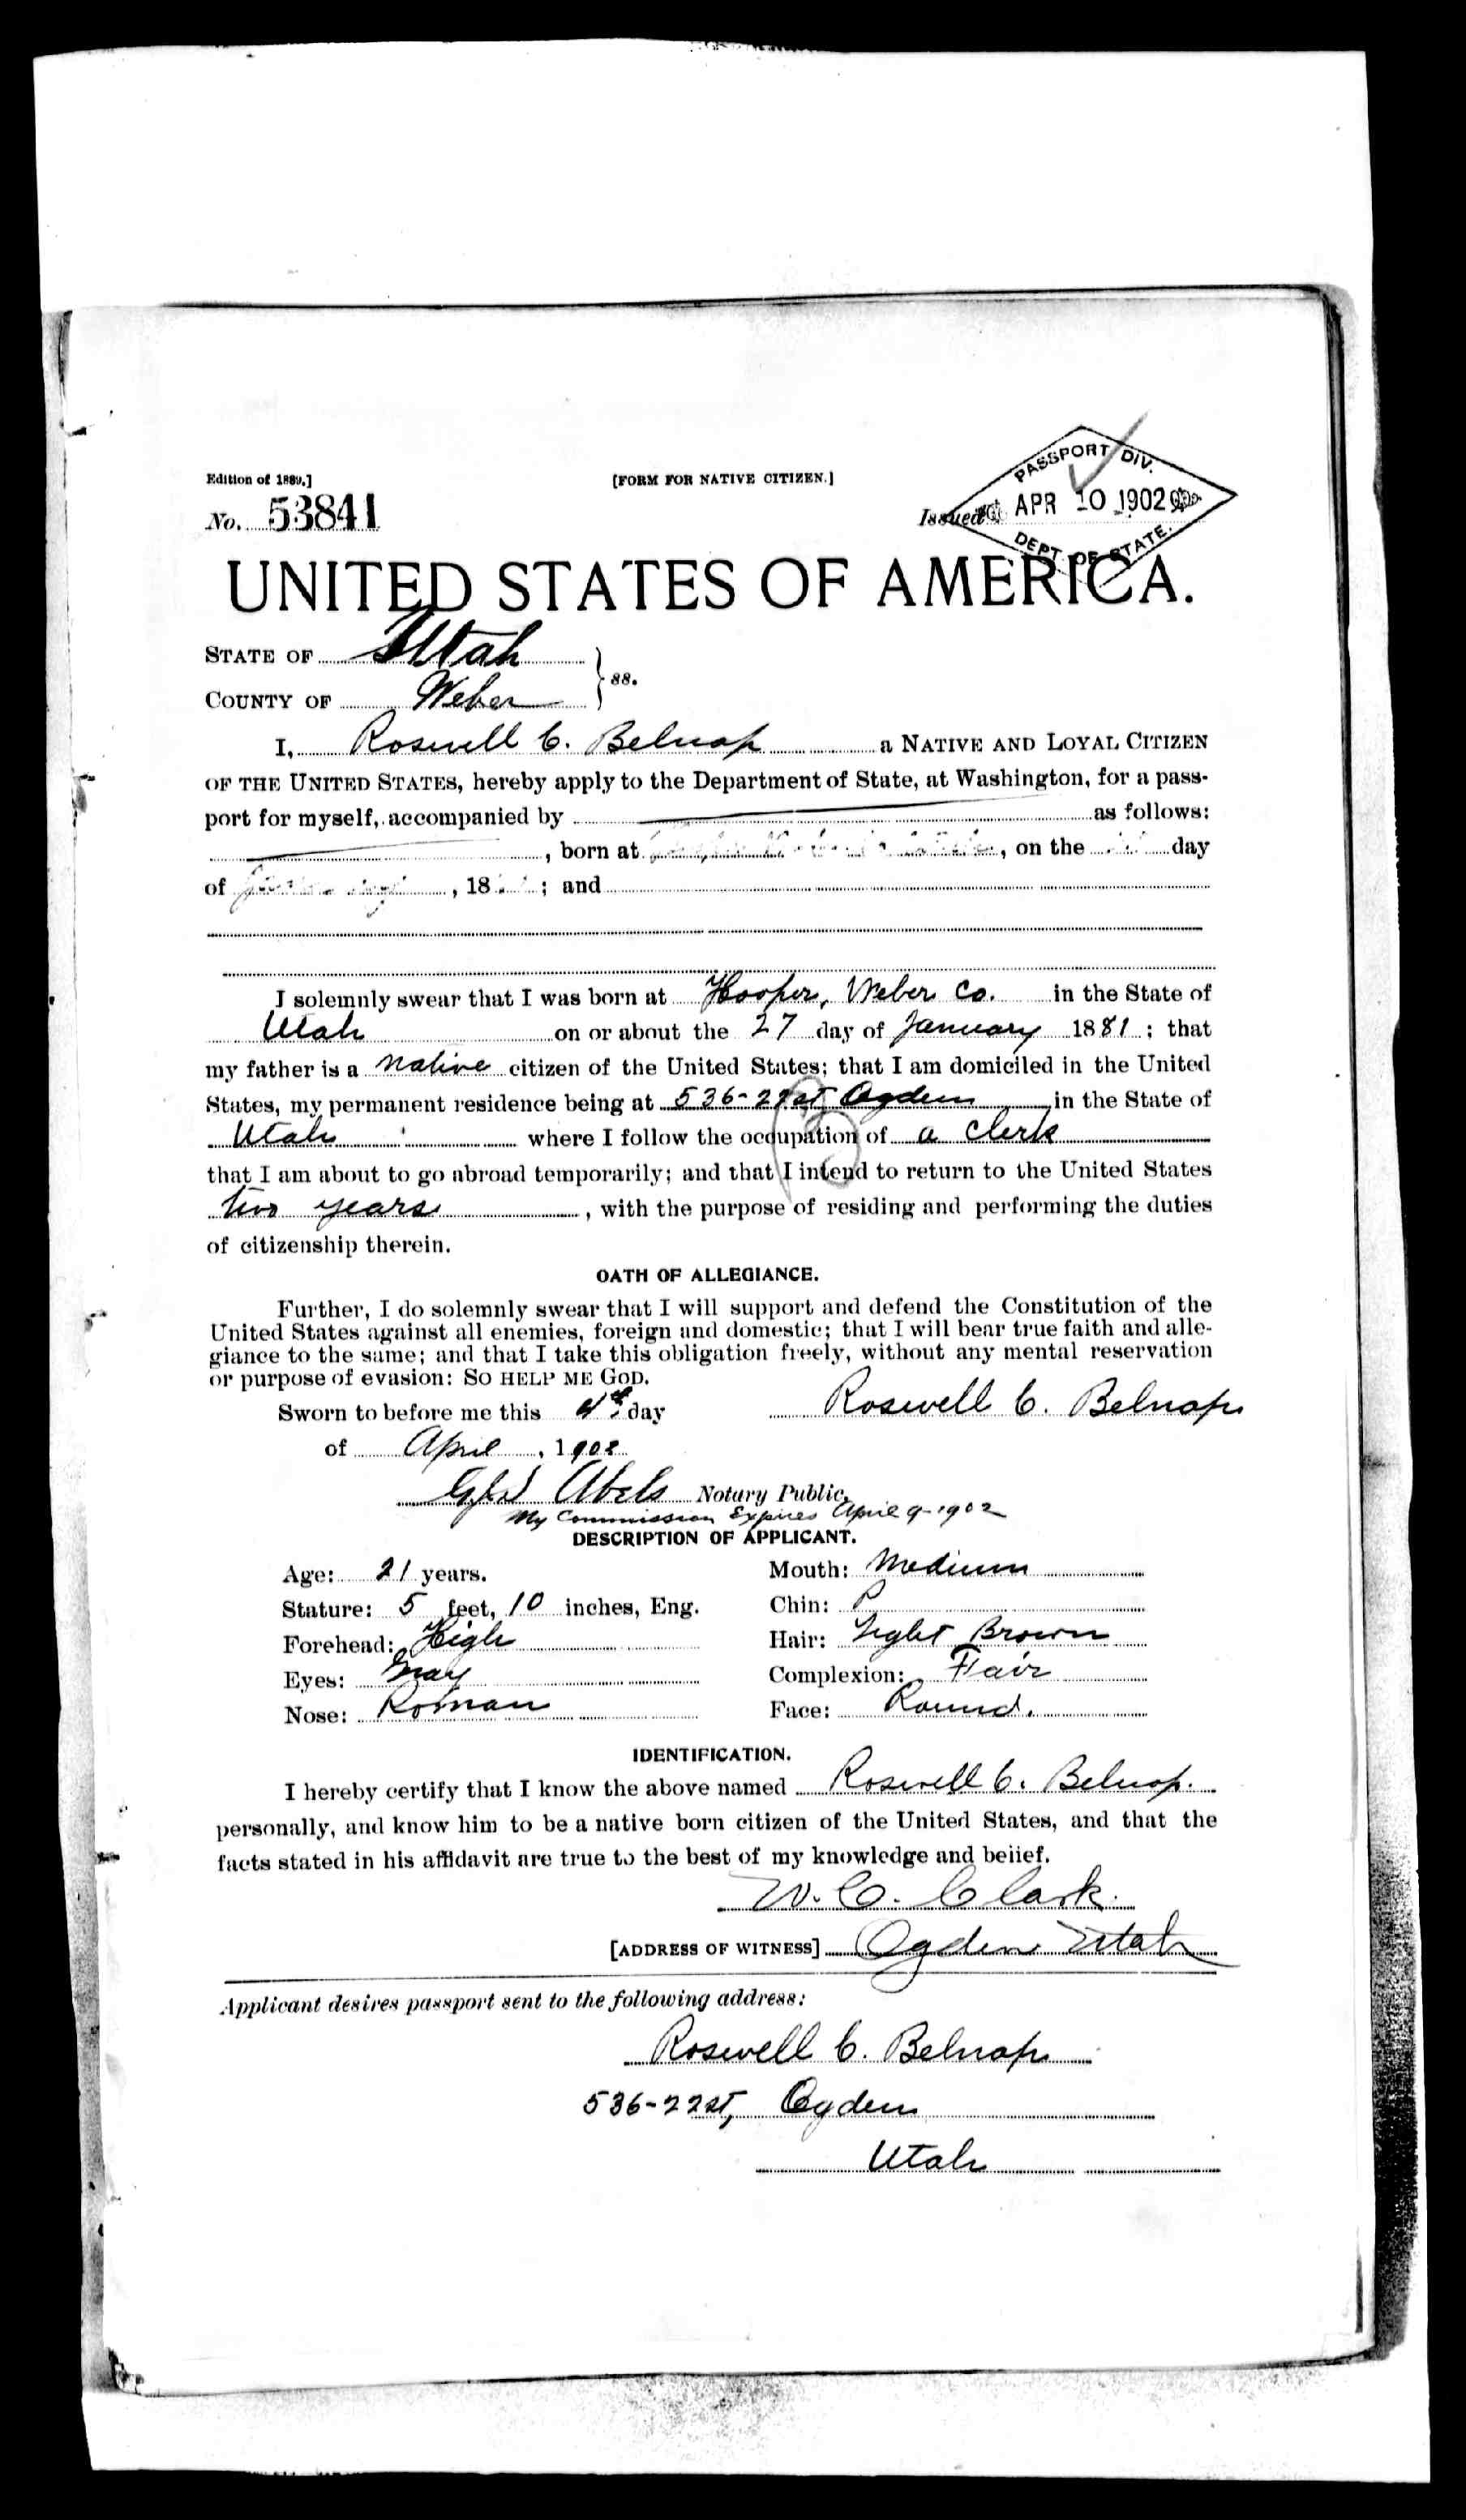 Edition of 1889.]
[FORM FOR NATIVE CITIZEN.]
No. 53841
Issued
PASSPORT DIV.
APR 10 1902
DEPT. OF STATE.
UNITED STATES OF AMERICA.
STATE OF Utah
COUNTY OF Weber } ss.
I, Roswell C. Belnap a NATIVE AND LOYAL CITIZEN
OF THE UNITED STATES, hereby apply to the Department of State, at Washington, for a pass-
port for myself, accompanied by as follows:
, born at , on the day
of , 18 ; and
I solemnly swear that I was born at Hooper, Weber Co. in the State of
Utah on or about the 27 day of January 1881; that
my father is a native citizen of the United States; that I am domiciled in the United
States, my permanent residence being at 536-22st Ogden in the State of
Utah where I follow the occupation of a clerk
that I am about to go abroad temporarily; and that I intend to return to the United States
two years, with the purpose of residing and performing the duties
of citizenship therein.
OATH OF ALLEGIANCE.
Further, I do solemnly swear that I will support and defend the Constitution of the
United States against all enemies, foreign and domestic; that I will bear true faith and alle-
giance to the same; and that I take this obligation freely, without any mental reservation
or purpose of evasion: SO HELP ME GOD.
Sworn to before me this 4th day Roswell C. Belnap
of April, 1902
Abels Notary Public.
My Commission Expires April 9-1902
DESCRIPTION OF APPLICANT.
Age: 21 years. Mouth: Medium
Stature: 5 feet, 10 inches, Eng. Chin:
Forehead: High Hair: Light Brown
Eyes: Gray Complexion: Fair
Nose: Roman Face: Round.
IDENTIFICATION.
I hereby certify that I know the above named Roswell C. Belnap.
personally, and know him to be a native born citizen of the United States, and that the
facts stated in his affidavit are true to the best of my knowledge and belief.
W. C. Clark.
[ADDRESS OF WITNESS] Ogden Utah
Applicant desires passport sent to the following address:
Roswell C. Belnap
536-22st, Ogden
Utah